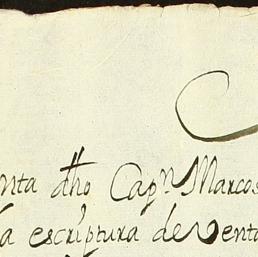 nta dho Capn Marcos
a escriptura de venta